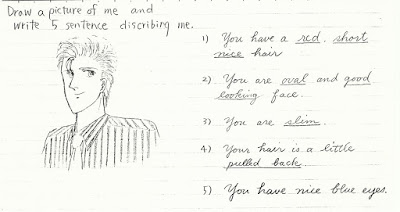 Draw a picture of me and
write 5 sentence discribing me.
1) You have a red, short
nice hair
2) You are oval and good
looking face.
3) You are slim.
4) Your hair is a little
pulled back.
5) You have nice blue eyes.